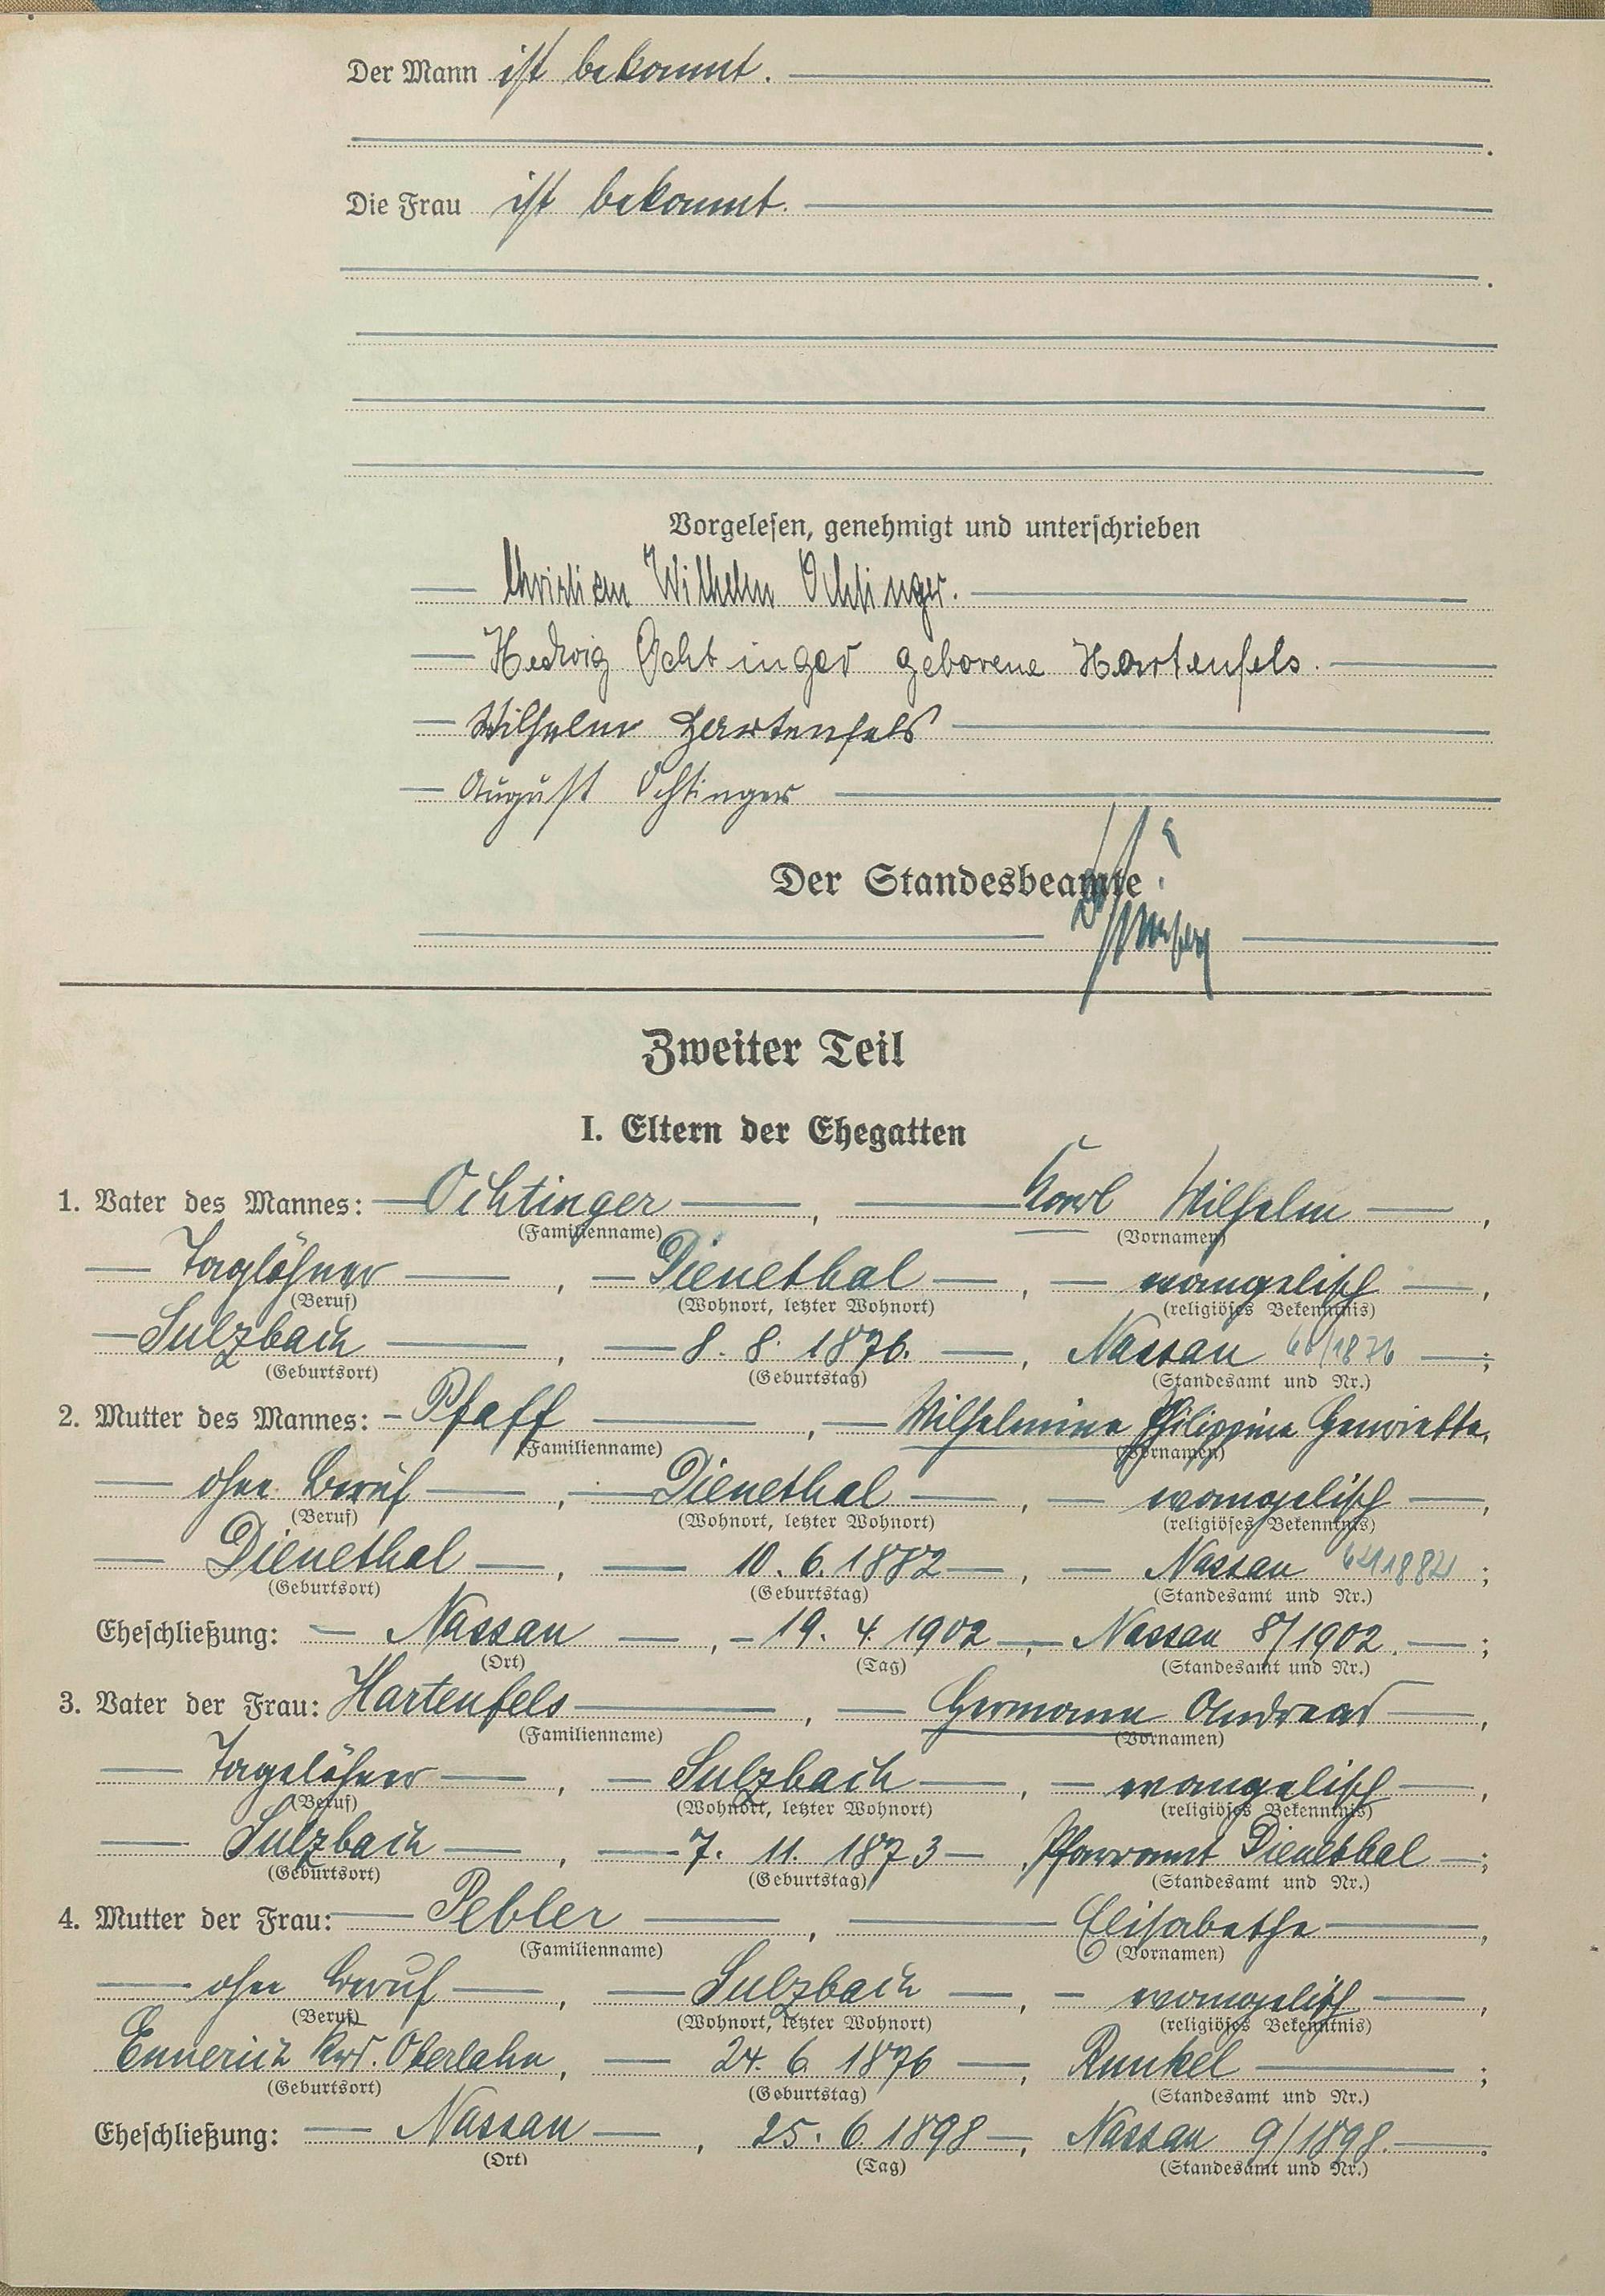 Der Mann ist bekannt.
Die Frau ist bekannt.
Vorgelesen, genehmigt und unterschrieben
Christian Wilhelm Ochtinger.
Hedwig Ochtinger geborene Hartenfels.
Wilhelm Hartenfels
August Ochtinger
Der Standesbeamte
Zweiter Teil
I. Eltern der Ehegatten
1. Vater des Mannes: Ochtinger, Karl Wilhelm,
(Familienname) (Vornamen)
Taglöhner, Dienethal, evangelisch,
(Beruf) (Wohnort, letzter Wohnort) (religiöses Bekenntnis)
Sulzbach, 8. 8. 1876., Nassau 60/1876;
(Geburtsort) (Geburtstag) (Standesamt und Nr.)
2. Mutter des Mannes: Pfaff, Wilhelmine Philippine Henriette,
(Familienname) (Vornamen)
ohne Beruf, Dienethal, evangelisch,
(Beruf) (Wohnort, letzter Wohnort) (religiöses Bekenntnis)
Dienethal, 10. 6. 1882, Nassau;
(Geburtsort) (Geburtstag) (Standesamt und Nr.)
Eheschließung: Nassau, 19. 4. 1902, Nassau 8/1902.;
(Ort) (Tag) (Standesamt und Nr.)
3. Vater der Frau: Hartenfels, Hermann Andreas,
(Familienname) (Vornamen)
Tagelöhner, Sulzbach, evangelisch,
(Beruf) (Wohnort, letzter Wohnort) (religiöses Bekenntnis)
Sulzbach, 7. 11. 1873, Pfarramt Dienethal;
(Geburtsort) (Geburtstag) (Standesamt und Nr.)
4. Mutter der Frau: Pebler, Elisabethe,
(Familienname) (Vornamen)
ohne Beruf, Sulzbach, evangelisch,
(Beruf) (Wohnort, letzter Wohnort) (religiöses Bekenntnis)
Ennerich Krs. Oberlahn, 24. 6. 1876, Runkel;
(Geburtsort) (Geburtstag) (Standesamt und Nr.)
Eheschließung: Nassau, 25. 6. 1898, Nassau 9/1898.
(Ort) (Tag) (Standesamt und Nr.)